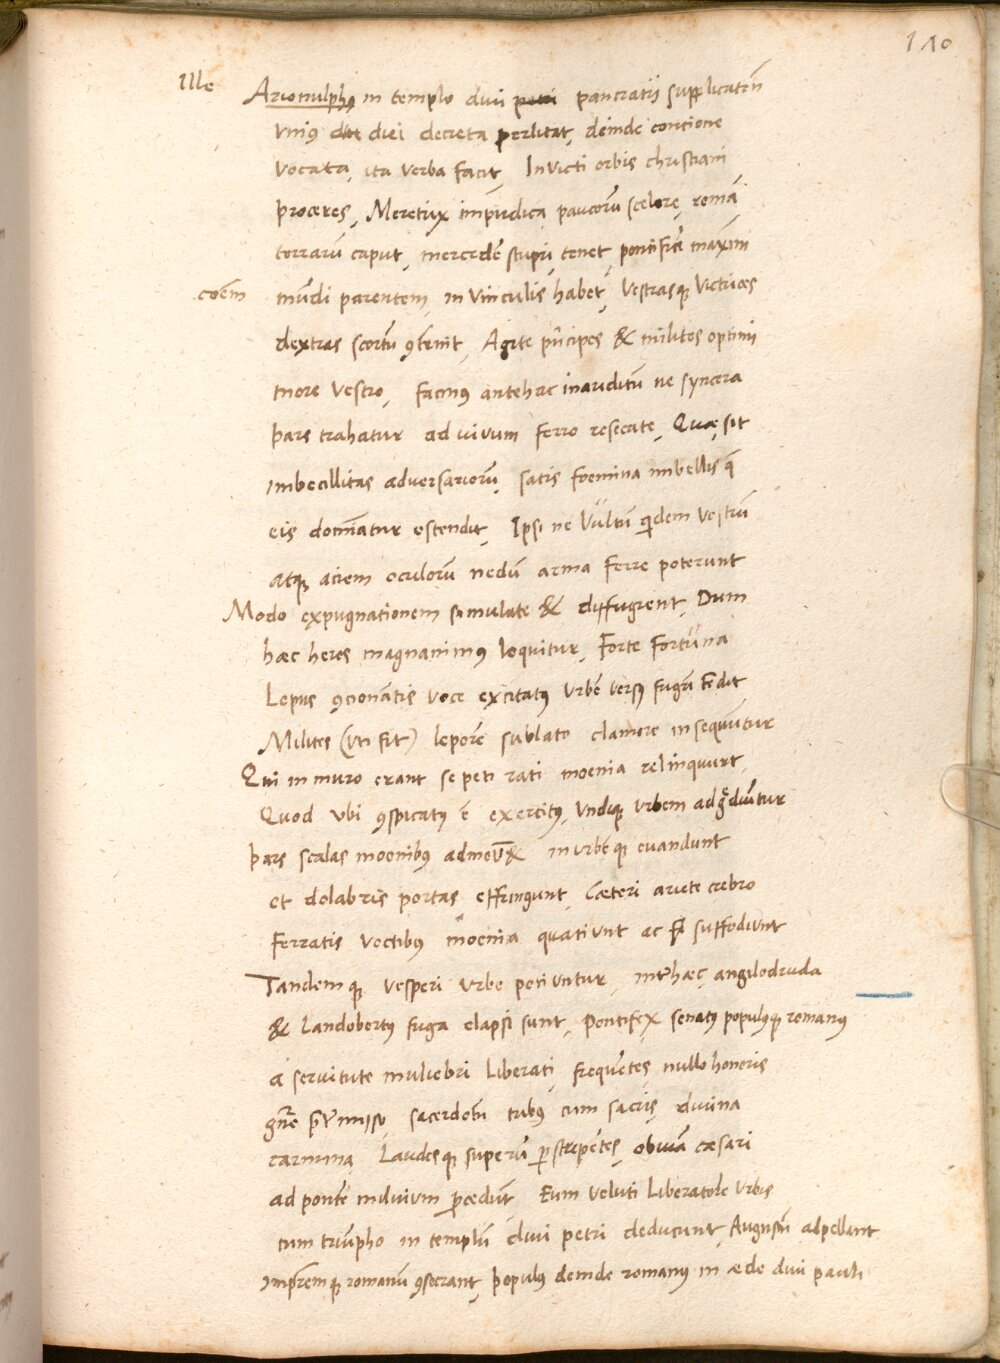 110
Ille Arionulphus in templo divi petri pancratii supplicatiõn
unius diei decreta perlitat, deinde contione
vocata, ita verba facit, Invicti orbis christiani
proceres, Meretrix impudica paucorũ scelere, romã
terrarũ caput, mercedẽ stupri, tenet, pontificẽ maximi
eõem mũdi parentem, in vinculis habet, vestrasque victrices
dextras scortũ 9temnit, Agite prĩcipes & milites optimi
more vestro, facinus antehac inauditũ ne syncera
pars trahatur ad vivum ferro resecate, Quæ sit
imbecillitas adversariorũ, satis foemina imbellis q̃
eis domĩatur ostendit, Ipsi ne vultũ qidem vestrũ
atque aciem oculorũ nedũ arma ferre poterunt
Modo expugnationem simulate & diffugient, Dum
hæc heros magnanimus loquitur, Forte fortuna
Lepus 9cionãtis voce excitatus urbẽ versus fugã tẽdit
Milites (uti fit) leporẽ sublato clamore insequũtur
Qui in muro erant se peti rati moenia relinquunt,
Quod ubi 9spicatus ẽ exercitus, undique urbem adgrediũtur
pars scalas moenibus admovẽt in urbẽque evandunt
et dolabris portas effringunt, Cæteri ariete crebro
ferratis vectibus moenia quatiunt ac suffodiunt
Tandemque vesperi urbe potiuntur, inter hæc, angilodruda
& Landobertus fuga elapsi sunt, pontifex senatus populusque romanus
a servitute muliebri liberati, frequẽtes, nullo honoris
gñe sacerdotũ tribus cum sacris, divina
carmina, Laudesque superũ pstrepẽtes, obviã cæsari
ad pontẽ mulvium pcedũt, Eum veluti liberatorẽ urbis
cum triũpho in templũ divi petri deducunt, Augustũ adpellant
imprẽmque romanũ 9secrant, populus deinde romanus in æde divi pauli